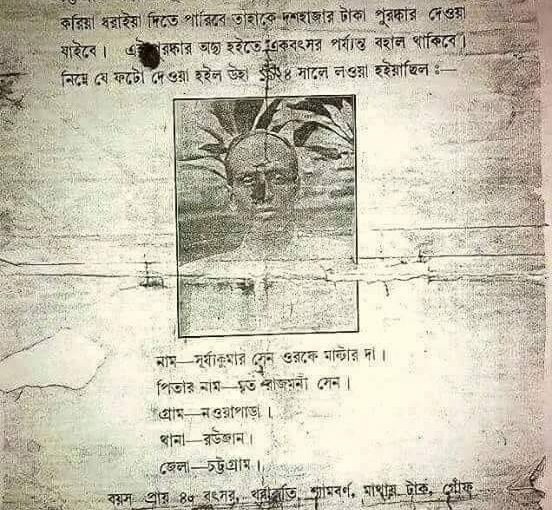 করিয়া ধরাইয়া দিতে পারিবে তাহাকে দশহাজার টাকা পুরস্কার দেওয়া
যাইবে। এই পুরস্কার অদ্য হইতে একবৎসর পর্য্যন্ত বহাল থাকিবে।
নিম্নে যে ফটো দেওয়া হইল উহা সালে লওয়া হইয়াছিল :—
নাম—সূর্য্যকুমার সেন ওরফে মাষ্টার দা।
পিতার নাম—মৃত রাজমনী সেন।
গ্রাম—নওয়াপাড়া।
থানা—রাউজান।
জেলা—চট্টগ্রাম।
বয়স প্রায় ৪০ বৎসর, শ্যামবর্ণ, মাথায় টাক, গোঁফ